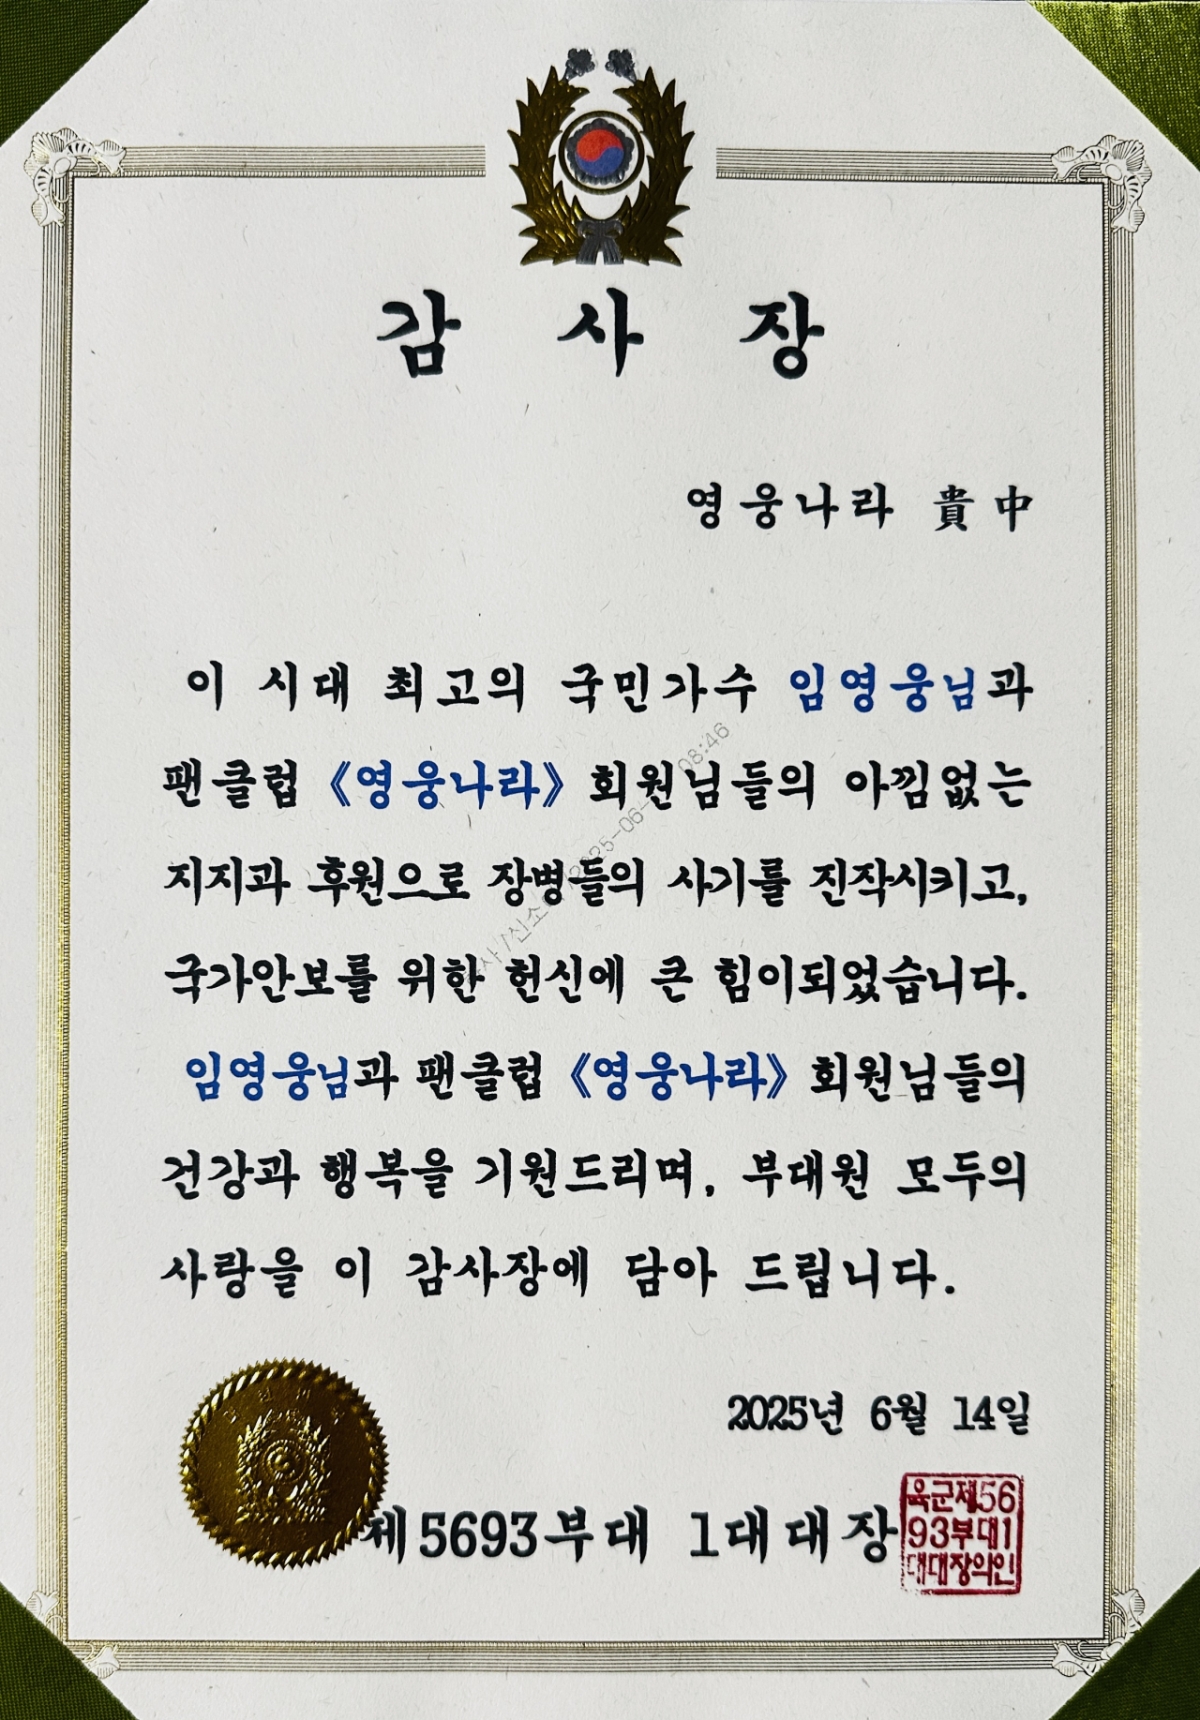 감 사 장
영웅나라 貴中
이 시대 최고의 국민가수 임영웅님과
팬클럽 《영웅나라》 회원님들의 아낌없는
지지과 후원으로 장병들의 사기를 진작시키고,
국가안보를 위한 헌신에 큰 힘이되었습니다.
임영웅님과 팬클럽 《영웅나라》 회원님들의
건강과 행복을 기원드리며, 부대원 모두의
사랑을 이 감사장에 담아 드립니다.
2025년 6월 14일
제5693부대 1대대장
육군제56
93부대1
대대장의인